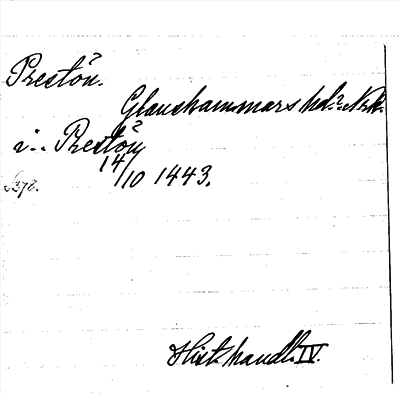 Prestön.
Glanshammars hd. Nrk.
i.. Prestön
14/10 1443.
Hist. handl. IV.